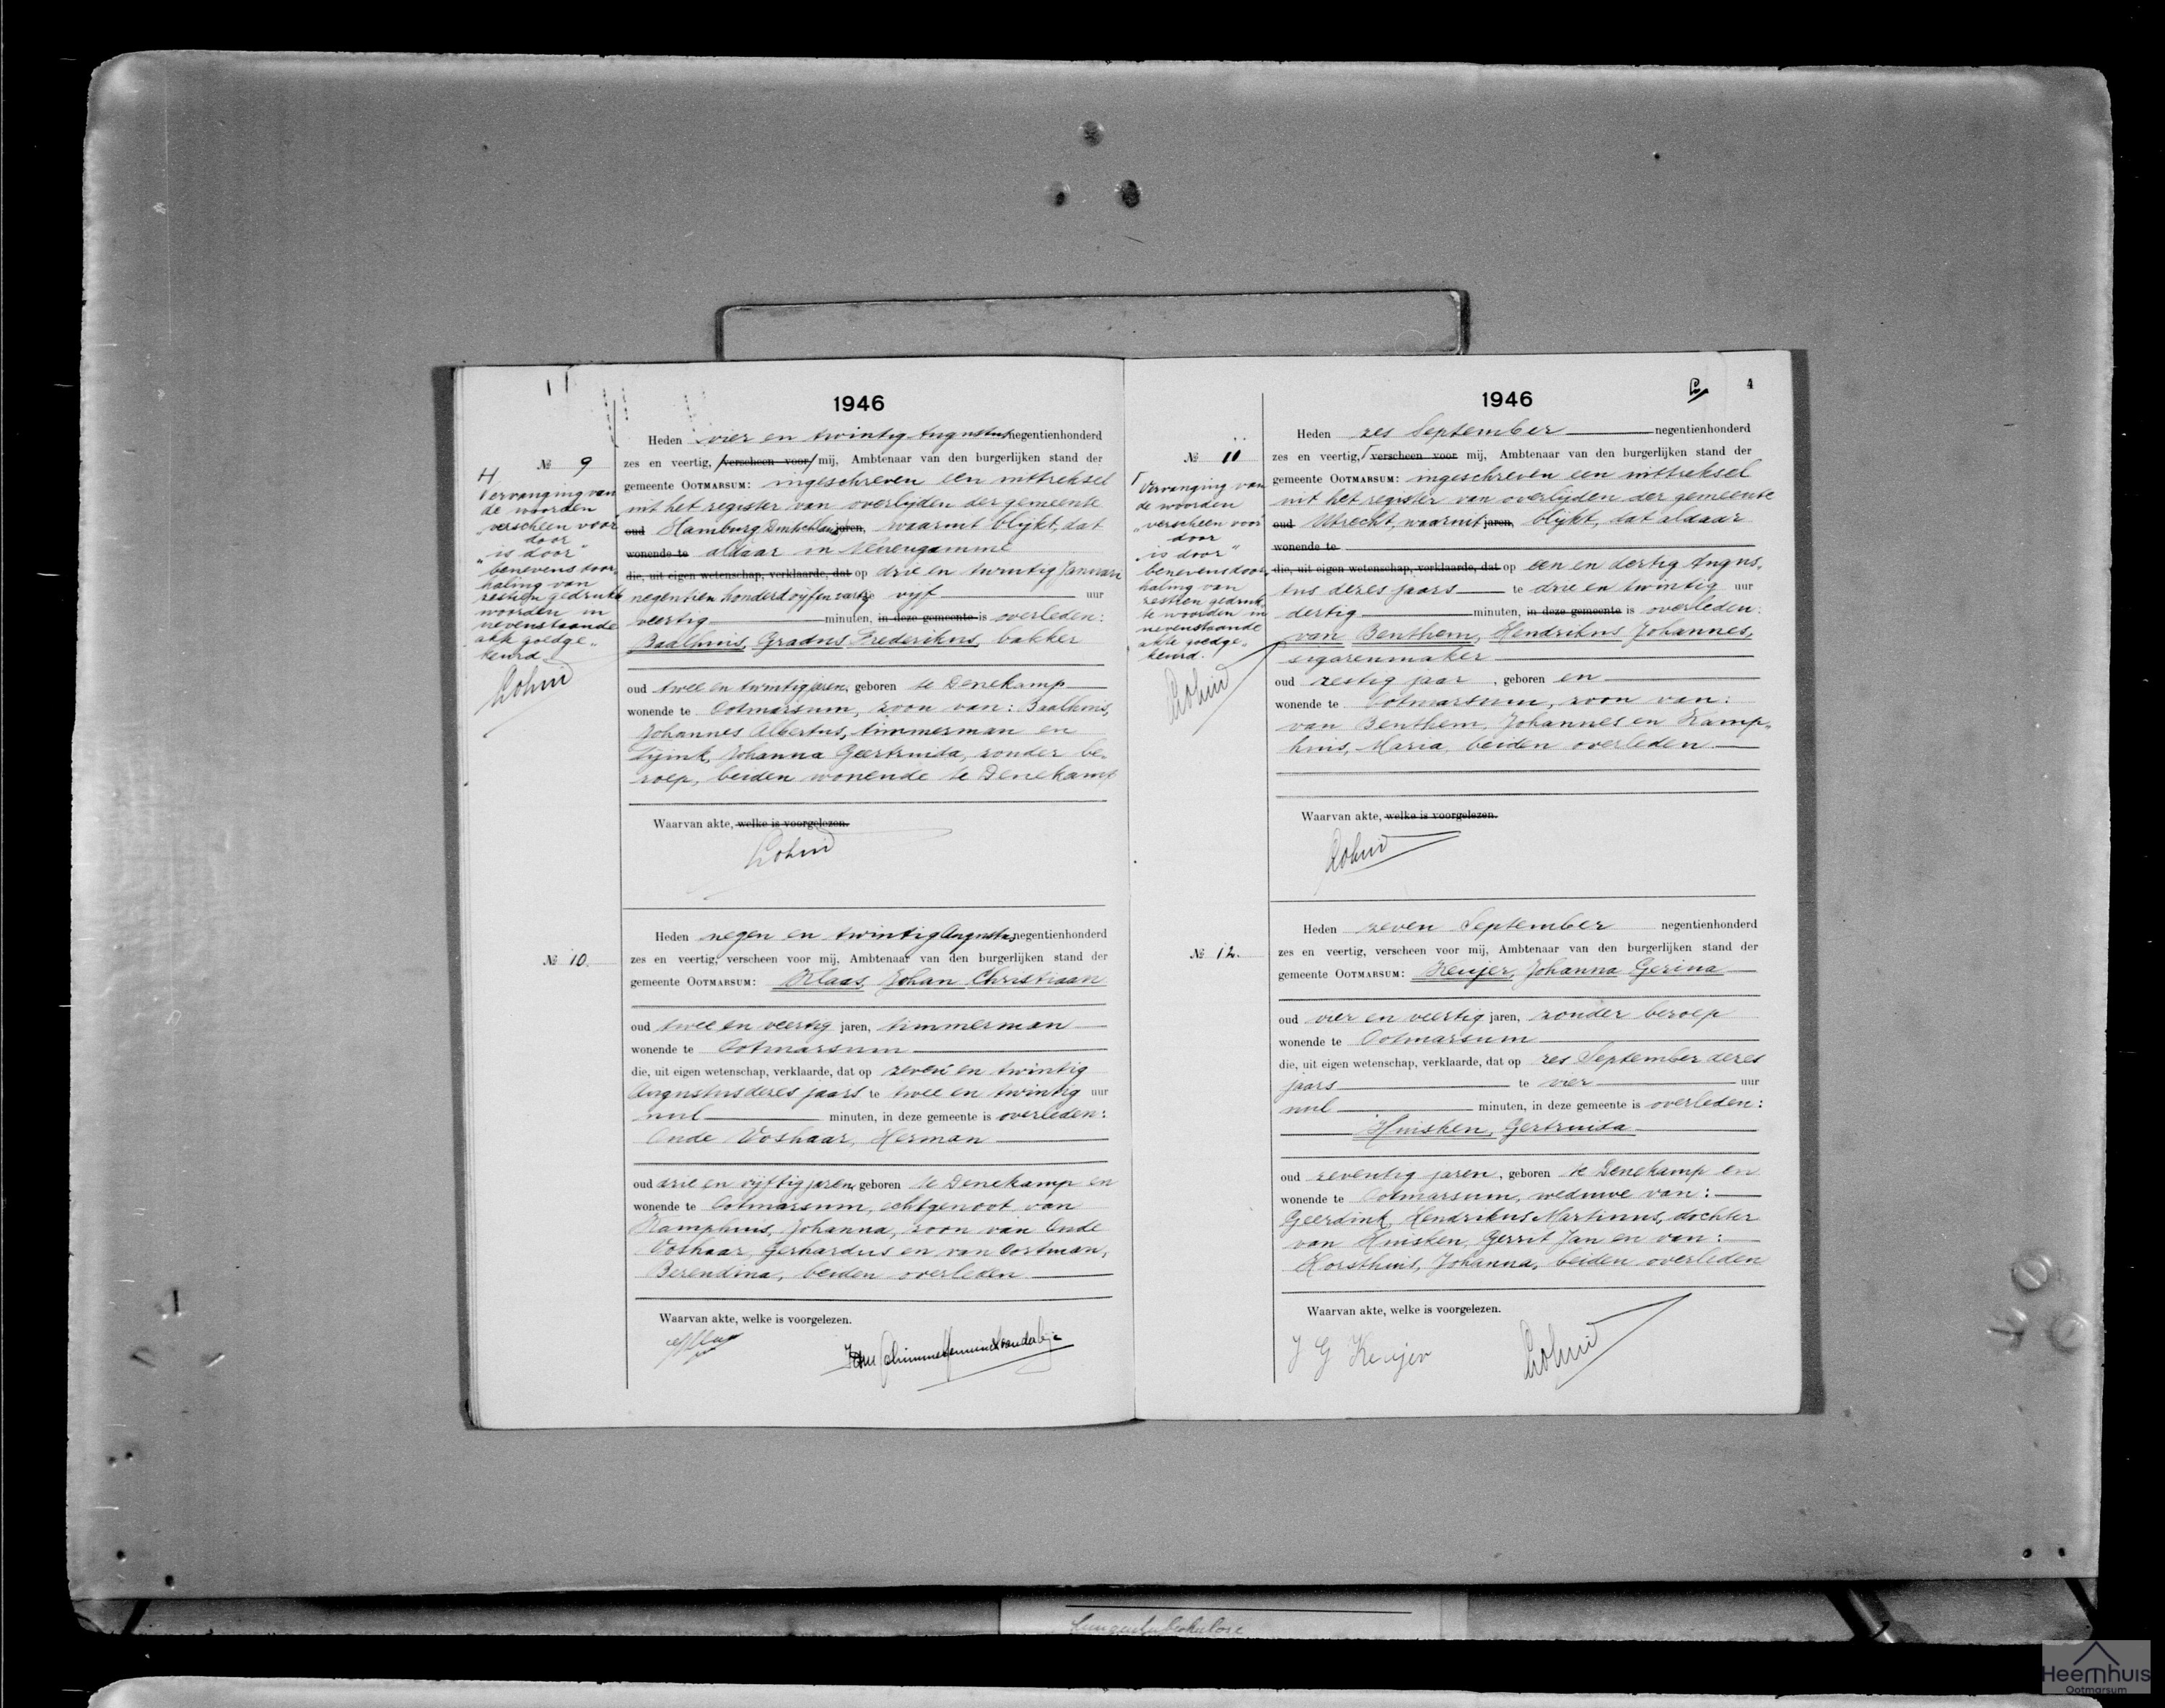 1946
Heden vier en twintig Augustus negentienhonderd
№ 9
zes en veertig, verscheen voor mij, Ambtenaar van den burgerlijken stand der
gemeente OOTMARSUM: ingeschreven een uittreksel
uit het register van overlijden der gemeente
oud Hamburg, Duitschland jaren, waaruit blijkt, dat
wonende te aldaar in Neuengamme
die, uit eigen wetenschap, verklaarde, dat op drie en twintig Januari
negentien honderd vijf en veertig te vijf uur
veertig minuten, in deze gemeente is overleden:
Baalhuis, Gradus Frederikus, bakker
oud twee en twintig jaren, geboren te Denekamp
wonende te Ootmarsum, zoon van: Baalhuis,
Johannes Albertus, timmerman en
Tijink, Johanna Geertruida, zonder be-
roep, beiden wonende te Denekamp
Waarvan akte, welke is voorgelezen.
H
Vervanging van
de woorden
"verscheen voor"
door
"is door"
benevens door-
haling van
zestien gedrukte
woorden in
nevenstaande
akte goedge-
keurd.
Heden negen en twintig Augustus negentienhonderd
№ 10.
zes en veertig, verscheen voor mij, Ambtenaar van den burgerlijken stand der
gemeente OOTMARSUM: Klaas, Johan Christiaan
oud twee en veertig jaren, timmerman
wonende te Ootmarsum
die, uit eigen wetenschap, verklaarde, dat op zeven en twintig
Augustus dezes jaars te twee en twintig uur
nul minuten, in deze gemeente is overleden:
Oude Voshaar, Herman
oud drie en vijftig jaren, geboren te Denekamp en
wonende te Ootmarsum, echtgenoot van
Kamphuis, Johanna, zoon van Oude
Voshaar, Gerhardus en van Oortman,
Berendina, beiden overleden
Waarvan akte, welke is voorgelezen.
1946
4
Heden zes September negentienhonderd
№ 11
zes en veertig, verscheen voor mij, Ambtenaar van den burgerlijken stand der
gemeente OOTMARSUM: ingeschreven een uittreksel
uit het register van overlijden der gemeente
oud Utrecht, waaruit jaren, blijkt, dat aldaar
wonende te
die, uit eigen wetenschap, verklaarde, dat op een en dertig Augus-
tus dezes jaars te drie en twintig uur
dertig minuten, in deze gemeente is overleden:
van Benthem, Hendrikus Johannes,
sigarenmaker
oud zestig jaar, geboren en
wonende te Ootmarsum, zoon van:
van Benthem, Johannes en Kamp-
huis, Maria, beiden overleden
Waarvan akte, welke is voorgelezen.
Vervanging van
de woorden
"verscheen voor"
door
"is door"
benevens door-
haling van
zestien gedruk-
te woorden in
nevenstaande
akte goedge-
keurd.
Heden zeven September negentienhonderd
№ 12.
zes en veertig, verscheen voor mij, Ambtenaar van den burgerlijken stand der
gemeente OOTMARSUM: Keujer, Johanna Gerina
oud vier en veertig jaren, zonder beroep
wonende te Ootmarsum
die, uit eigen wetenschap, verklaarde, dat op zes September dezes
jaars te vier uur
nul minuten, in deze gemeente is overleden:
Huisken, Gertruida
oud zeventig jaren, geboren te Denekamp en
wonende te Ootmarsum, weduwe van:
Geerdink, Hendrikus Martinus, dochter
van Huisken, Gerrit Jan en van:
Horsthuis, Johanna, beiden overleden
Waarvan akte, welke is voorgelezen.
J G Keujer
Heemhuis
Ootmarsum